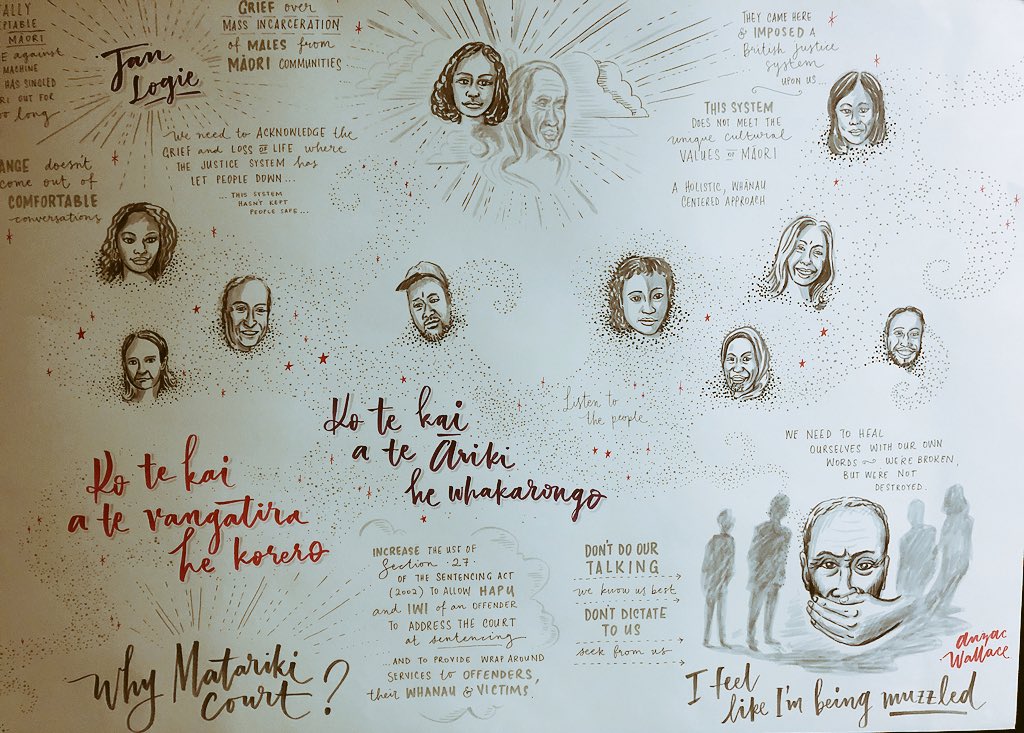 ALLY
PTABLE
MĀORI
E against
MACHINE
HAS SINGLED
RI OUT FOR
OO long
Jan
Logie
GRIEF over
MASS INCARCERATION
of MALES from
MĀORI COMMUNITIES
We need to ACKNOWLEDGE the
GRIEF and LOSS OF LIFE where
THE JUSTICE SYSTEM has
LET PEOPLE DOWN...
...THIS SYSTEM
HASN'T KEPT
PEOPLE SAFE...
ANGE doesn't
come out of
COMFORTABLE
conversations
THEY CAME HERE
& IMPOSED A
British Justice
system
UPON US...
THIS SYSTEM
DOES NOT MEET THE
unique cultural
VALUES OF MĀORI
A HOLISTIC, WHĀNAU
CENTERED APPROACH
Listen to
the people
Ko te kai
a te Ariki
he whakarongo
Ko te kai
a te rangatira
he korero
WE NEED TO HEAL
OURSELVES WITH OUR OWN
WORDS ~ WERE BROKEN,
BUT WERE NOT
DESTROYED.
Why Matariki
Court?
INCREASE THE USE OF
Section 27
OF THE SENTENCING ACT
(2002) TO ALLOW HAPU
and IWI of an OFFENDER
TO ADDRESS THE COURT
at sentencing
...AND TO PROVIDE WRAP AROUND
SERVICES to OFFENDERS,
their WHANAU & VICTIMS.
DON'T DO OUR
TALKING
we know us best
DON'T DICTATE
TO US
seek from us
Anzac
Wallace
I feel
like I'm being muzzled